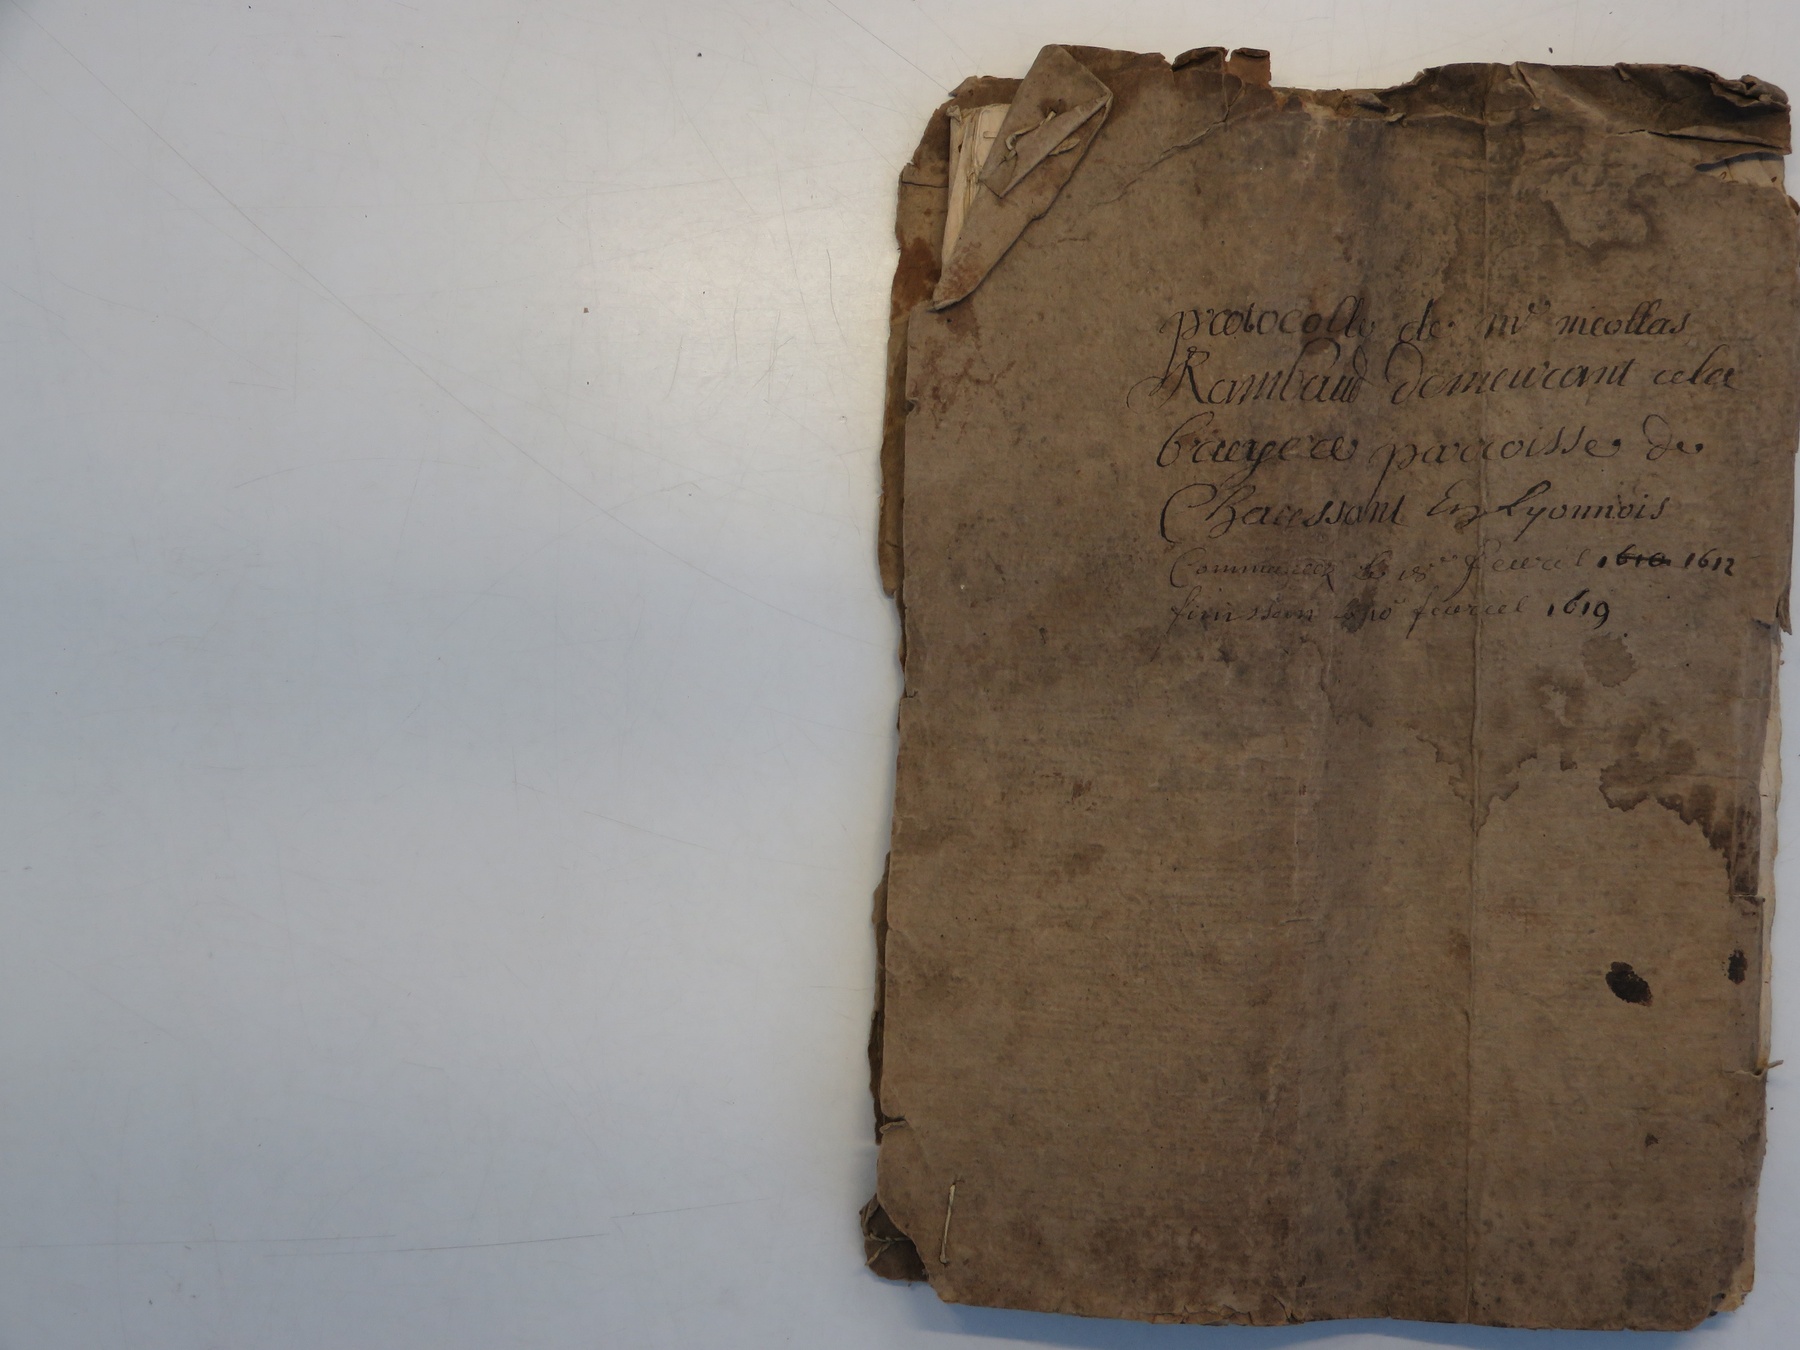 protocolle de mr nicollas
Rambaud demeurant a la
bruyere parroisse de
Chaussant En Lyonnois
Commancé le 18 feuvrel 1610 1612
finissan 10 feuvrel 1619